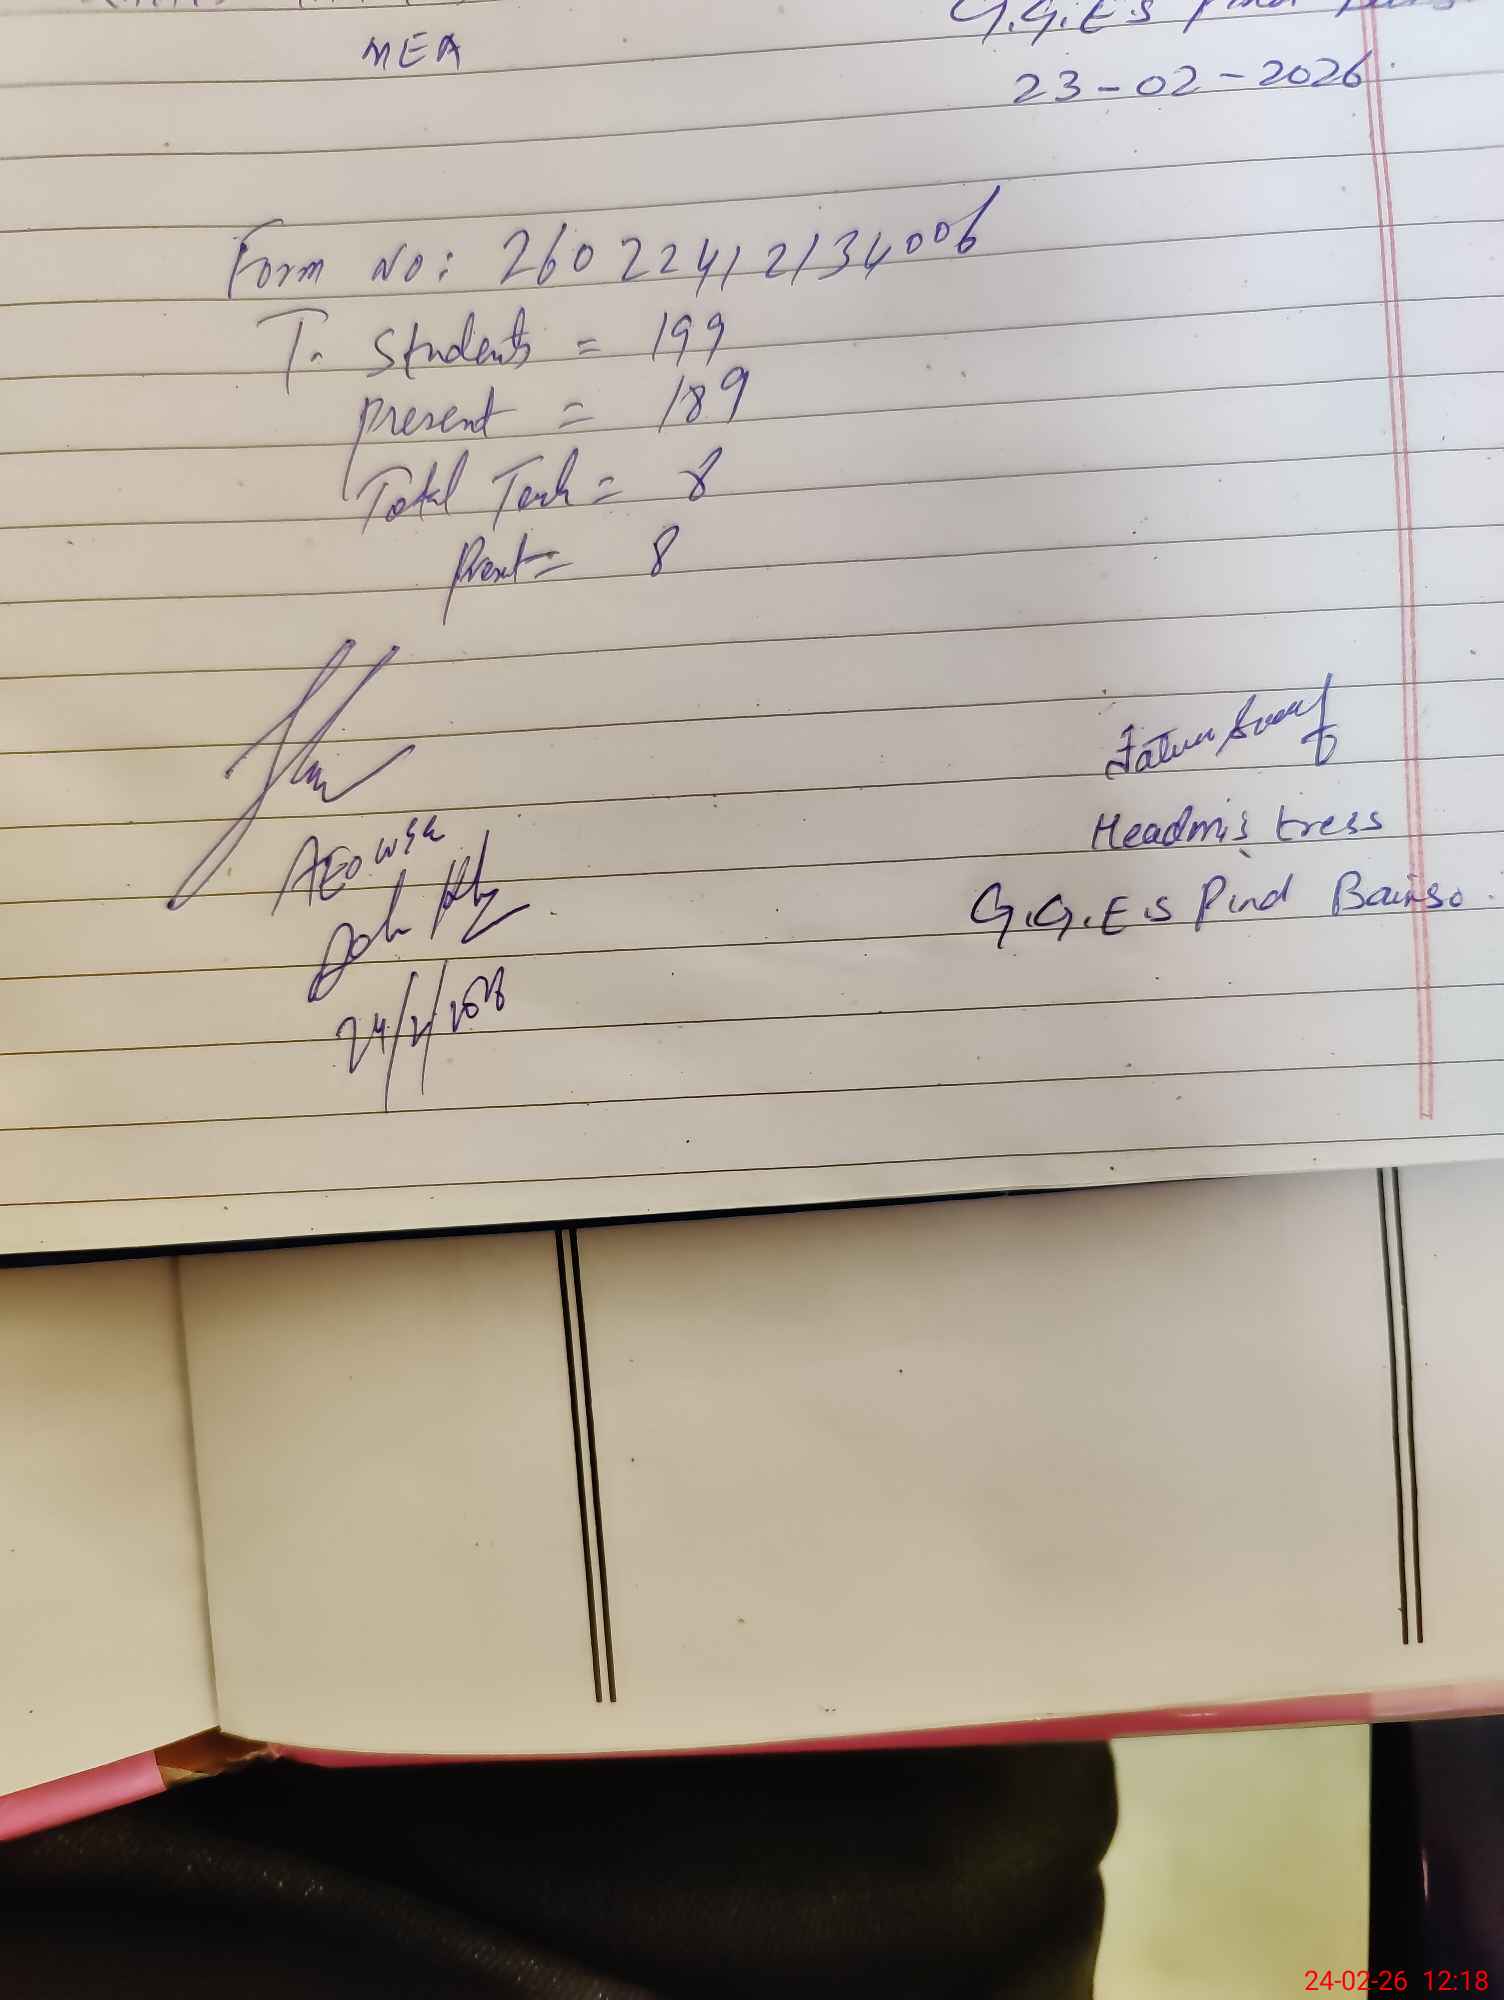 MEA
G.G.E.S Pind
23-02-2026
Form No: 26022412134006
T. Students = 199
Present = 189
Total Teach = 8
Present = 8
AEO
24/2/2026
Headmistress
G.G.E.S Pind Bainso.
24-02-26 12:18